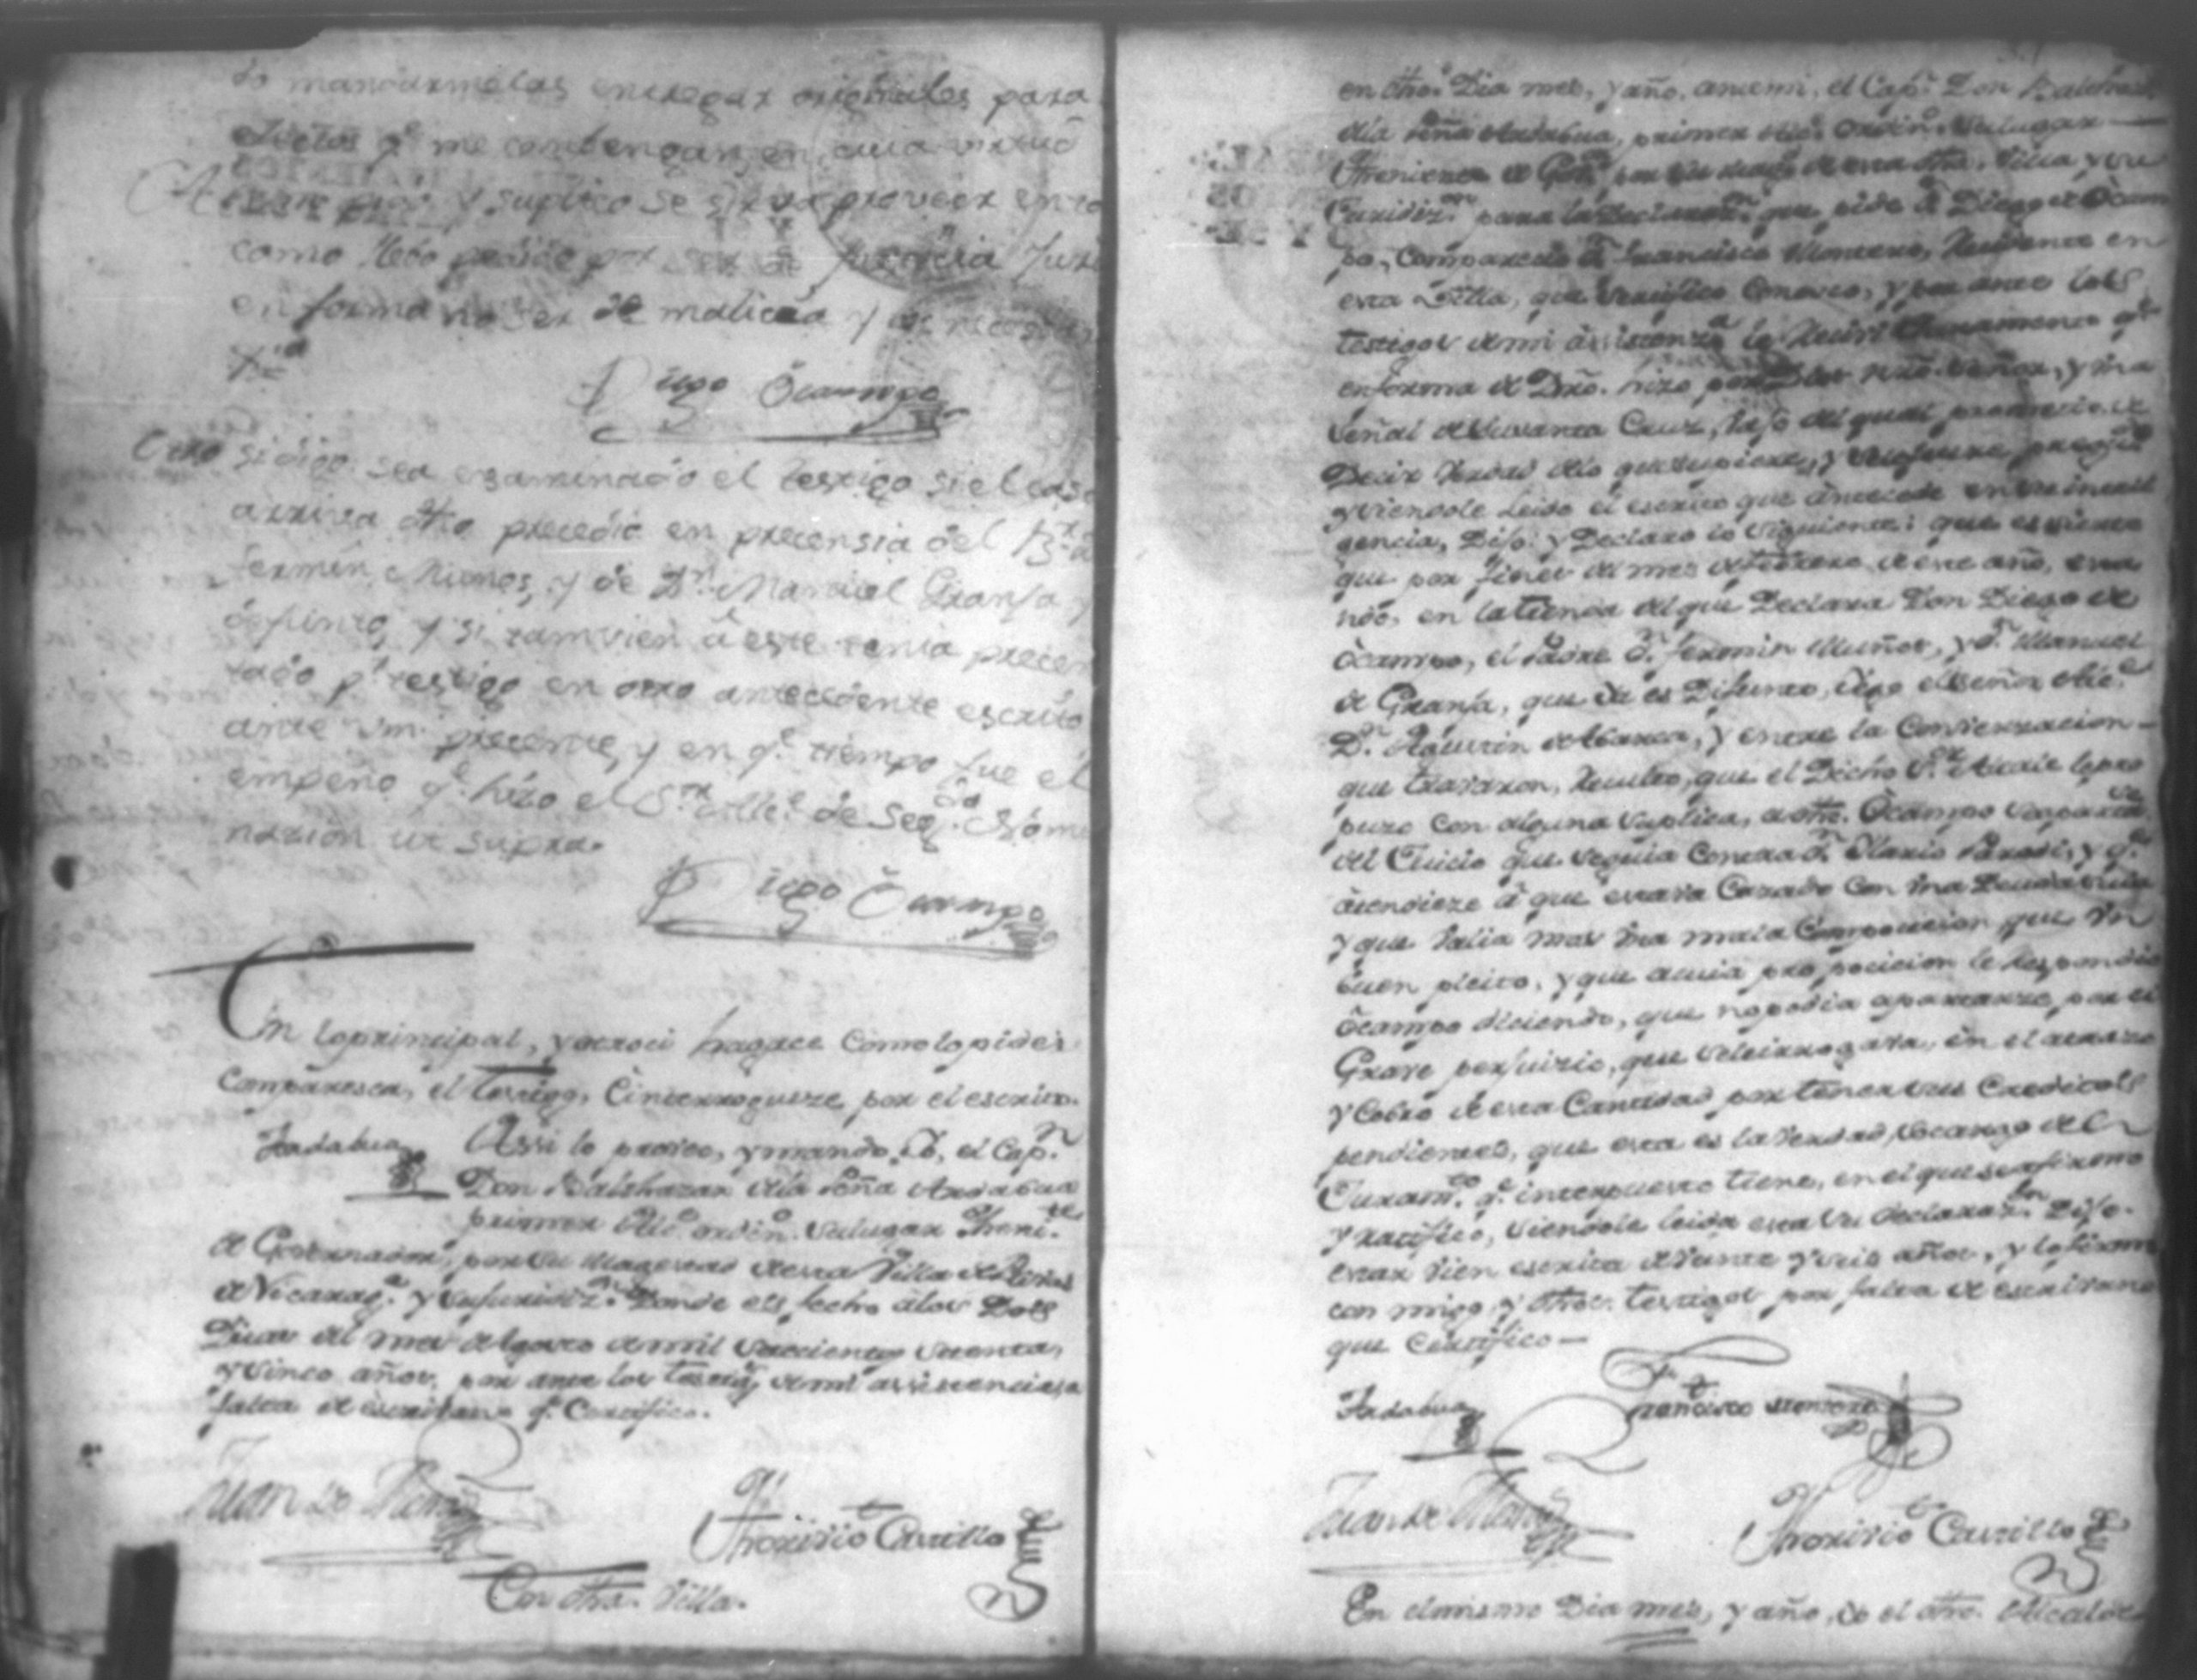 do mandarmelas entregar originales para
efectos q.e me combengan, en cuia virtud
A Vm pido y suplico se sirva proveer en to
como llebo pedido por ser de justicia Juro
en forma no ser de malicia y en lo necess.o
Diego Ocampo
Otro si digo sea examinado el testigo si el caso
arriva dho precedió en precensia del P.e
fermin Muños, y de D.n Manuel Granja y
difunto, y si tamvien á este tenia precen
tado p.r testigo en otro antecedente escrito
ante Vm. precente, y en q.e tiempo fue el
empeño q.e hizo el S.or Alle.e de Seg.da Nomi
nación ut supra.
Diego Ocampo
En lo principal, y otrosi hagace como lo pide:
Comparesca, el testigo, é interroguesse por el escrito.
Andabua Assi lo proveo, y mando Yo, el Cap.n
Don Balthazar de la Peña Andabua
primer Alc.e ordin.o Su lugar Theni.te
de Governador, por su Magestad de esta Villa de Rivas
de Nicarag.a y su Jurisdiz.on Donde es fecho á los Dos
Dias del mes de Agosto de mil Settecientos Setenta,
y Cinco años, por ante los testig.s de mi assistencia, a
falta de escribano q.e Certifico.
Juan de
Thorivio Carrillo
En dha. Villa.
en dho. Dia mes, y año, ante mi, el Cap.n Don Balthazar
de la Peña Andabua, primer Alc.e Ordin.o Su lugar
Theniente de Gov.or por su Mag.d de esta dha. Villa y su
Jurisdiz.on para la Declaraz.on que pide D.n Diego de Ocam
po, Comparecio D.n Francisco Montero, Residente en
esta Villa, que Certifico Conosco, y por ante los
testigos de mi assistenzia le Recivi Juramento q.e
en forma de Dro. hizo por Dios Nro. Señor, y una
Señal de Su Santa Cruz, bajo del qual prometio de
Decir Verdad de lo que supiere, y se le fuere preg.do
y siendole Leido el escrito que antecede en su inteli
gencia, Dijo: y Declaro lo Siguiente: que es cierto
que por fines del mes de febrero de este año, estan
ndo, en la tienda del que Declara Don Diego de
Ocampo, el Padre D.n fermin Muños, y D.n Manuel
de Granja, que ya es Difunto, llego el Señor Alc.e
D.n Agustin de Abarca, y entre la Conversacion
que travaron, Resulto, que el Dicho S.or Alcalde le pro
puzo con alguna Suplica, a dho. Ocampo Se aparta
del Juicio que Seguia Contra D.n Ylario y q.e
atendieze á que estava Cazado Con una Deuda Suia
y que Valia mas una mala Composicion, que Un
buen pleito, y que a cuia propocicion le Respondio
Ocampo diciendo, que no podia apartarze, por el
Grave perjuizio, que Se le irrogava, en el atrazo
y Cobro de esta Cantidad por tener sus Creditos
pendientes, que esta es la Verdad, Socargo del
Juram.to q.e interpuesto tiene, en el que se afirmo
y ratifico, Siendole leida esta Su declaraz.on Dijo.
estar Vien escrita de Veinte y Seis años, y lo firmo
con migo, y dhos. testigos por falta de escribano
que Certifico —
Andabua Francisco Montero
Juan de
Thorivio Carrillo
En el mismo Dia mes, y año, Yo el dho. Alcalde